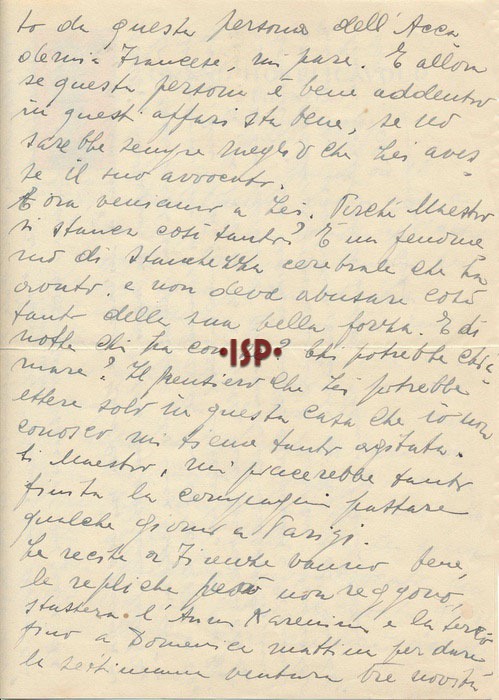 to da questa persona dell'Acca
demia Francese, mi pare. E allora
se questa persona è bene addentro
in questi affari sta bene, se no
sarebbe sempre meglio che Lei aves
se il suo avvocato.
E ora veniamo a Lei. Perché Maestro
si stanca così tanto? È un fenome
no di stanchezza cerebrale che ha
avuto, e non deve abusare così
tanto della sua bella forza. E di
notte chi ha con ? Chi potrebbe chia
mare? Il pensiero che Lei potrebbe
essere solo in questa casa che io non
conosco mi tiene tanto agitata.
Sì Maestro, mi piacerebbe tanto
finita la compagnia passare
qualche giorno a Parigi.
Le recite a Firenze vanno bene,
le repliche però non reggono,
stassera l'Anna Karenina e la
fino a Domenica mattina per dare
la settimana ventura tre novità
·ISP·